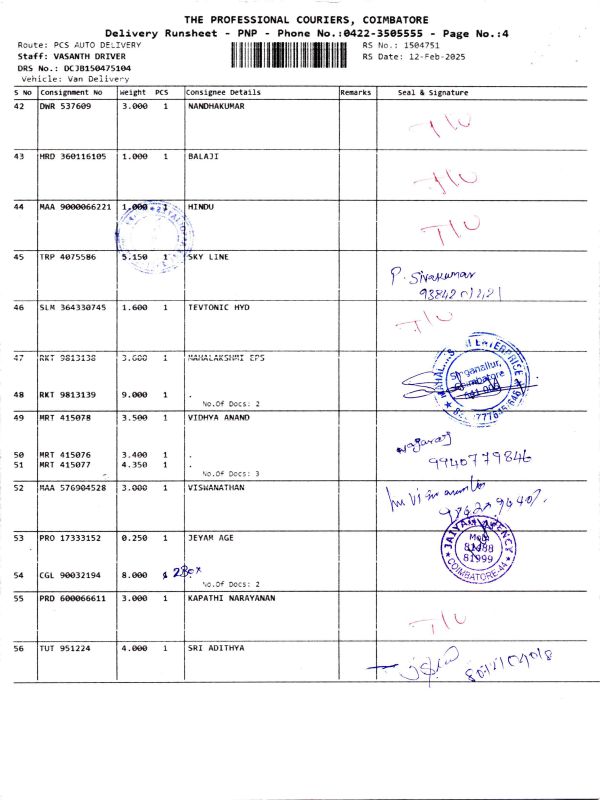 THE PROFESSIONAL COURIERS, COIMBATORE
Delivery Runsheet - PNP - Phone No.:0422-3505555 - Page No.:4
Route: PCS AUTO DELIVERY RS No.: 1504751
Staff: VASANTH DRIVER RS Date: 12-Feb-2025
DRS No.: DCJB150475104
Vehicle: Van Delivery
S No Consignment No Weight PCS Consignee Details Remarks Seal & Signature
42 DWR 537609 3.000 1 NANDHAKUMAR
T/U
43 HRD 360116105 1.000 1 BALAJI
T/U
44 MAA 9000066221 1.000 1 HINDU
T/U
45 TRP 4075586 5.150 1 SKY LINE
P. Sivakumar
46 SLM 364330745 1.600 1 TEVTONIC HYD
T/U
47 RKT 9813138 3.600 1 MAHALAKSHMI EPS
Singanallur,
Coimbatore
48 RKT 9813139 9.000 1 .
No.Of Docs: 2
49 MRT 415078 3.500 1 VIDHYA ANAND
Nagaraj
50 MRT 415076 3.400 1 .
51 MRT 415077 4.350 1 .
9940779846
No.Of Docs: 3
52 MAA 576904528 3.000 1 VISWANATHAN
53 PRO 17333152 0.250 1 JEYAM AGE
JAIYAM AGENCY
81999
COIMBATORE-44
54 CGL 90032194 8.000
No.Of Docs: 2
55 PRD 600066611 3.000 1 KAPATHI NARAYANAN
T/U
56 TUT 951224 4.000 1 SRI ADITHYA